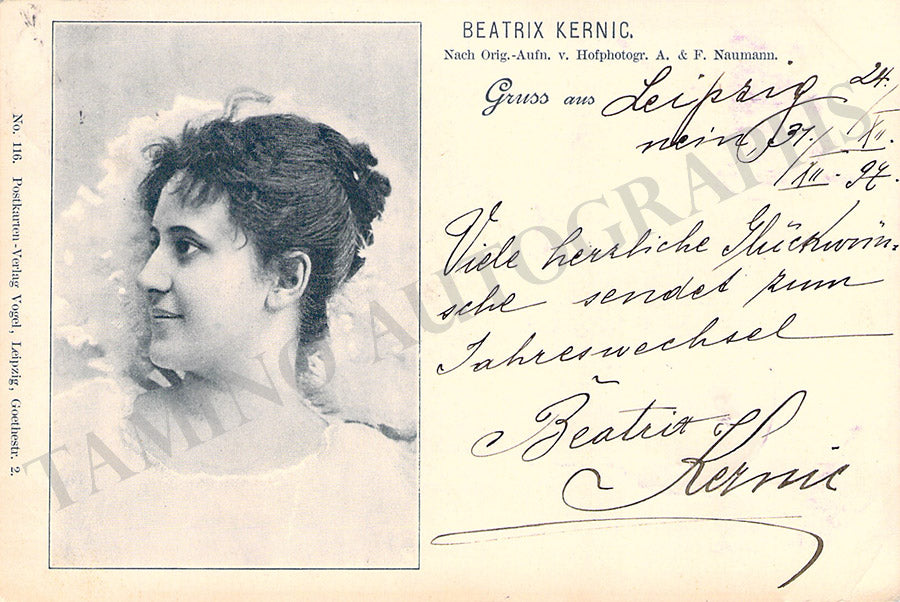 BEATRIX KERNIC.
Nach Orig.-Aufn. v. Hofphotogr. A. & F. Naumann.
Gruss aus Leipzig 24.
nein, 31. XII.
XII. 97.
Viele herzliche Glückwün-
sche sendet zum
Jahreswechsel
Beatrix
Kernic
No. 116. Postkarten-Verlag Vogel, Leipzig, Goethestr. 2.
TAMINO AUTOGRAPHS